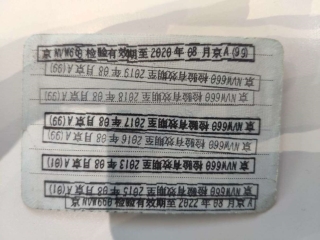 京NVW660 检验有效期至2020年08月京A(99)
京NVW660 检验有效期至2019年08月京A(99)
京NVW660 检验有效期至2018年08月京A(99)
京NVW660 检验有效期至2017年08月京A(99)
京NVW660 检验有效期至2016年08月京A(99)
京NVW660 检验有效期至2013年08月京A(01)
检验有效期至2015年08月京A(01)
京NVW660 检验有效期至2022年08月京A